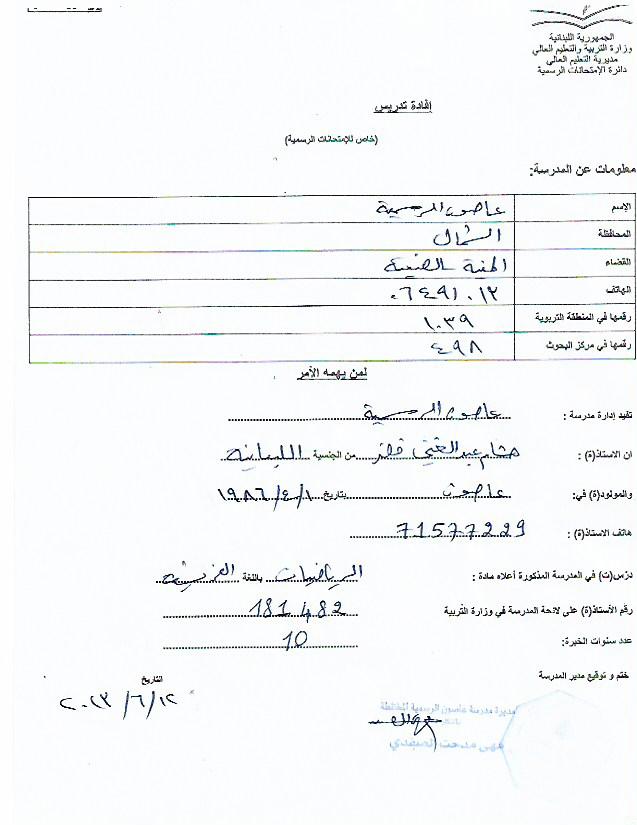 الجمهورية اللبنانية
وزارة التربية والتعليم العالي
مديرية التعليم العالي
دائرة الإمتحانات الرسمية
إفادة تدريس
(خاص للإمتحانات الرسمية)
معلومات عن المدرسة:
الإسم عاصون الرسمية
المحافظة الشمال
القضاء المنية الضنية
الهاتف ٠٦٤٩١٠١٢
رقمها في المنطقة التربوية ١٠٣٩
رقمها في مركز البحوث ٤٩٨
لمن يهمه الأمر
تفيد إدارة مدرسة : عاصون الرسمية
ان الاستاذ(ة) : هشام عبد الغني من الجنسية اللبنانية
والمولود(ة) في: عاصون بتاريخ ١٩٨٦/٤/١
هاتف الاستاذ(ة) : 71577229
درّس(ت) في المدرسة المذكورة أعلاه مادة : الرياضيات باللغة الفرنسية
رقم الأستاذ(ة) على لائحة المدرسة في وزارة التربية 181482
عدد سنوات الخبرة: 10
ختم و توقيع مدير المدرسة
التاريخ
٢٠٢٣/٦/١٢
مديرة مدرسة عاصون الرسمية المختلطة
مدحت الصمدي